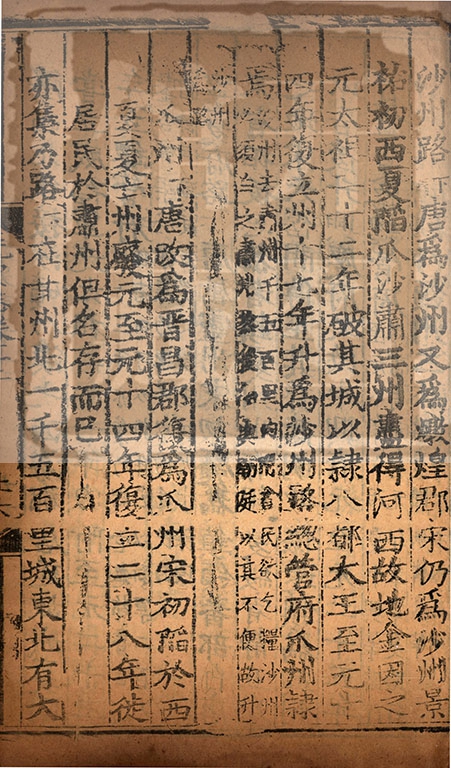 沙州路下唐爲沙州又爲燉煌郡宋仍爲沙州景
祐初西夏陷瓜沙肅三州盡得河西故地金因之
元太祖二十二年破其城以隷八都大王至元十
四年復立州十七年升爲沙州路總管府瓜州隷
焉沙州去肅州千五百里內附貧民欲乞糧沙州
必須白之肅州然後給與朝廷以其不便故升
沙州
爲路
瓜州下唐改爲晉昌郡復爲瓜州宋初陷於西
夏夏亡州廢元至元十四年復立二十八年徙
居民於肅州但名存而已
亦集乃路下在甘州北一千五百里城東北有大